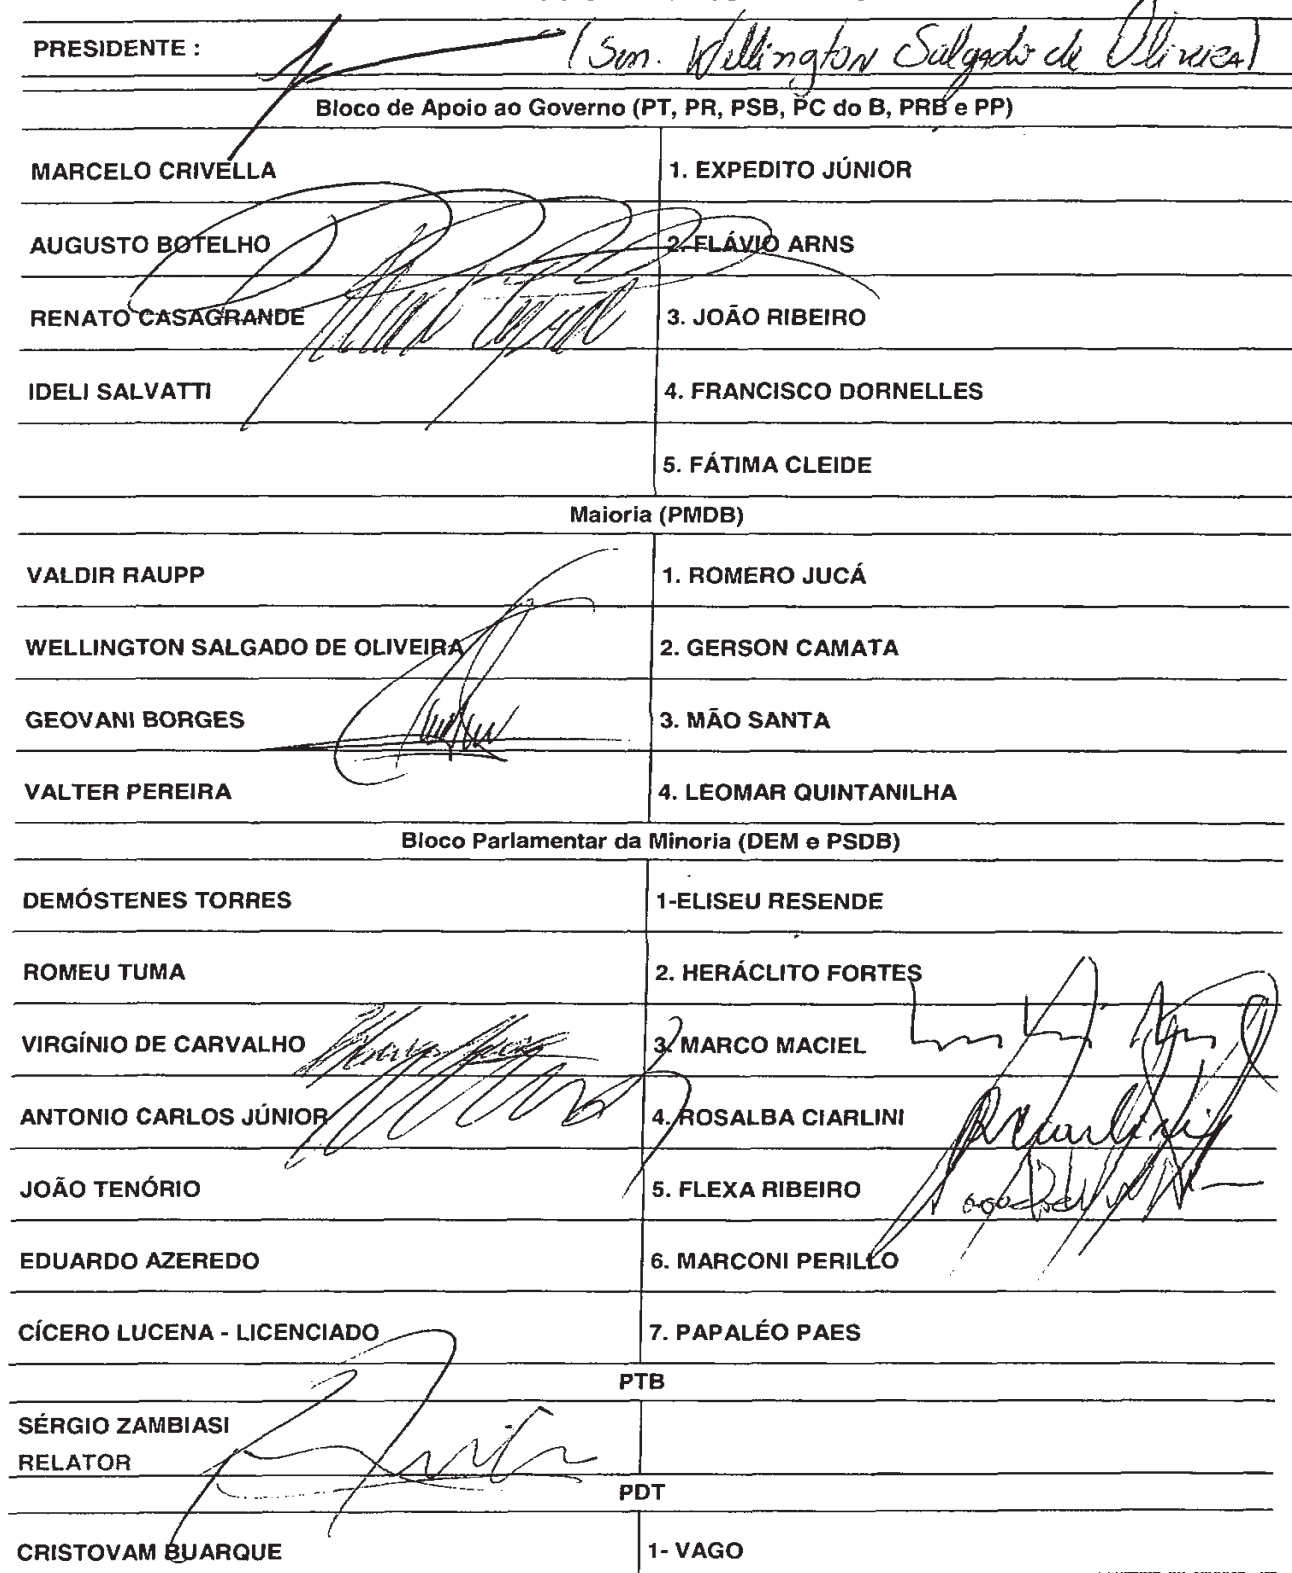 PRESIDENTE : (Sen. Wellington Salgado de Oliveira)
Bloco de Apoio ao Governo (PT, PR, PSB, PC do B, PRB e PP)
MARCELO CRIVELLA 1. EXPEDITO JÚNIOR
AUGUSTO BOTELHO 2. FLÁVIO ARNS
RENATO CASAGRANDE 3. JOÃO RIBEIRO
IDELI SALVATTI 4. FRANCISCO DORNELLES
5. FÁTIMA CLEIDE
Maioria (PMDB)
VALDIR RAUPP 1. ROMERO JUCÁ
WELLINGTON SALGADO DE OLIVEIRA 2. GERSON CAMATA
GEOVANI BORGES 3. MÃO SANTA
VALTER PEREIRA 4. LEOMAR QUINTANILHA
Bloco Parlamentar da Minoria (DEM e PSDB)
DEMÓSTENES TORRES 1-ELISEU RESENDE
ROMEU TUMA 2. HERÁCLITO FORTES
VIRGÍNIO DE CARVALHO 3. MARCO MACIEL
ANTONIO CARLOS JÚNIOR 4. ROSALBA CIARLINI
JOÃO TENÓRIO 5. FLEXA RIBEIRO
EDUARDO AZEREDO 6. MARCONI PERILLO
CÍCERO LUCENA - LICENCIADO 7. PAPALÉO PAES
PTB
SÉRGIO ZAMBIASI
RELATOR
PDT
CRISTOVAM BUARQUE 1- VAGO